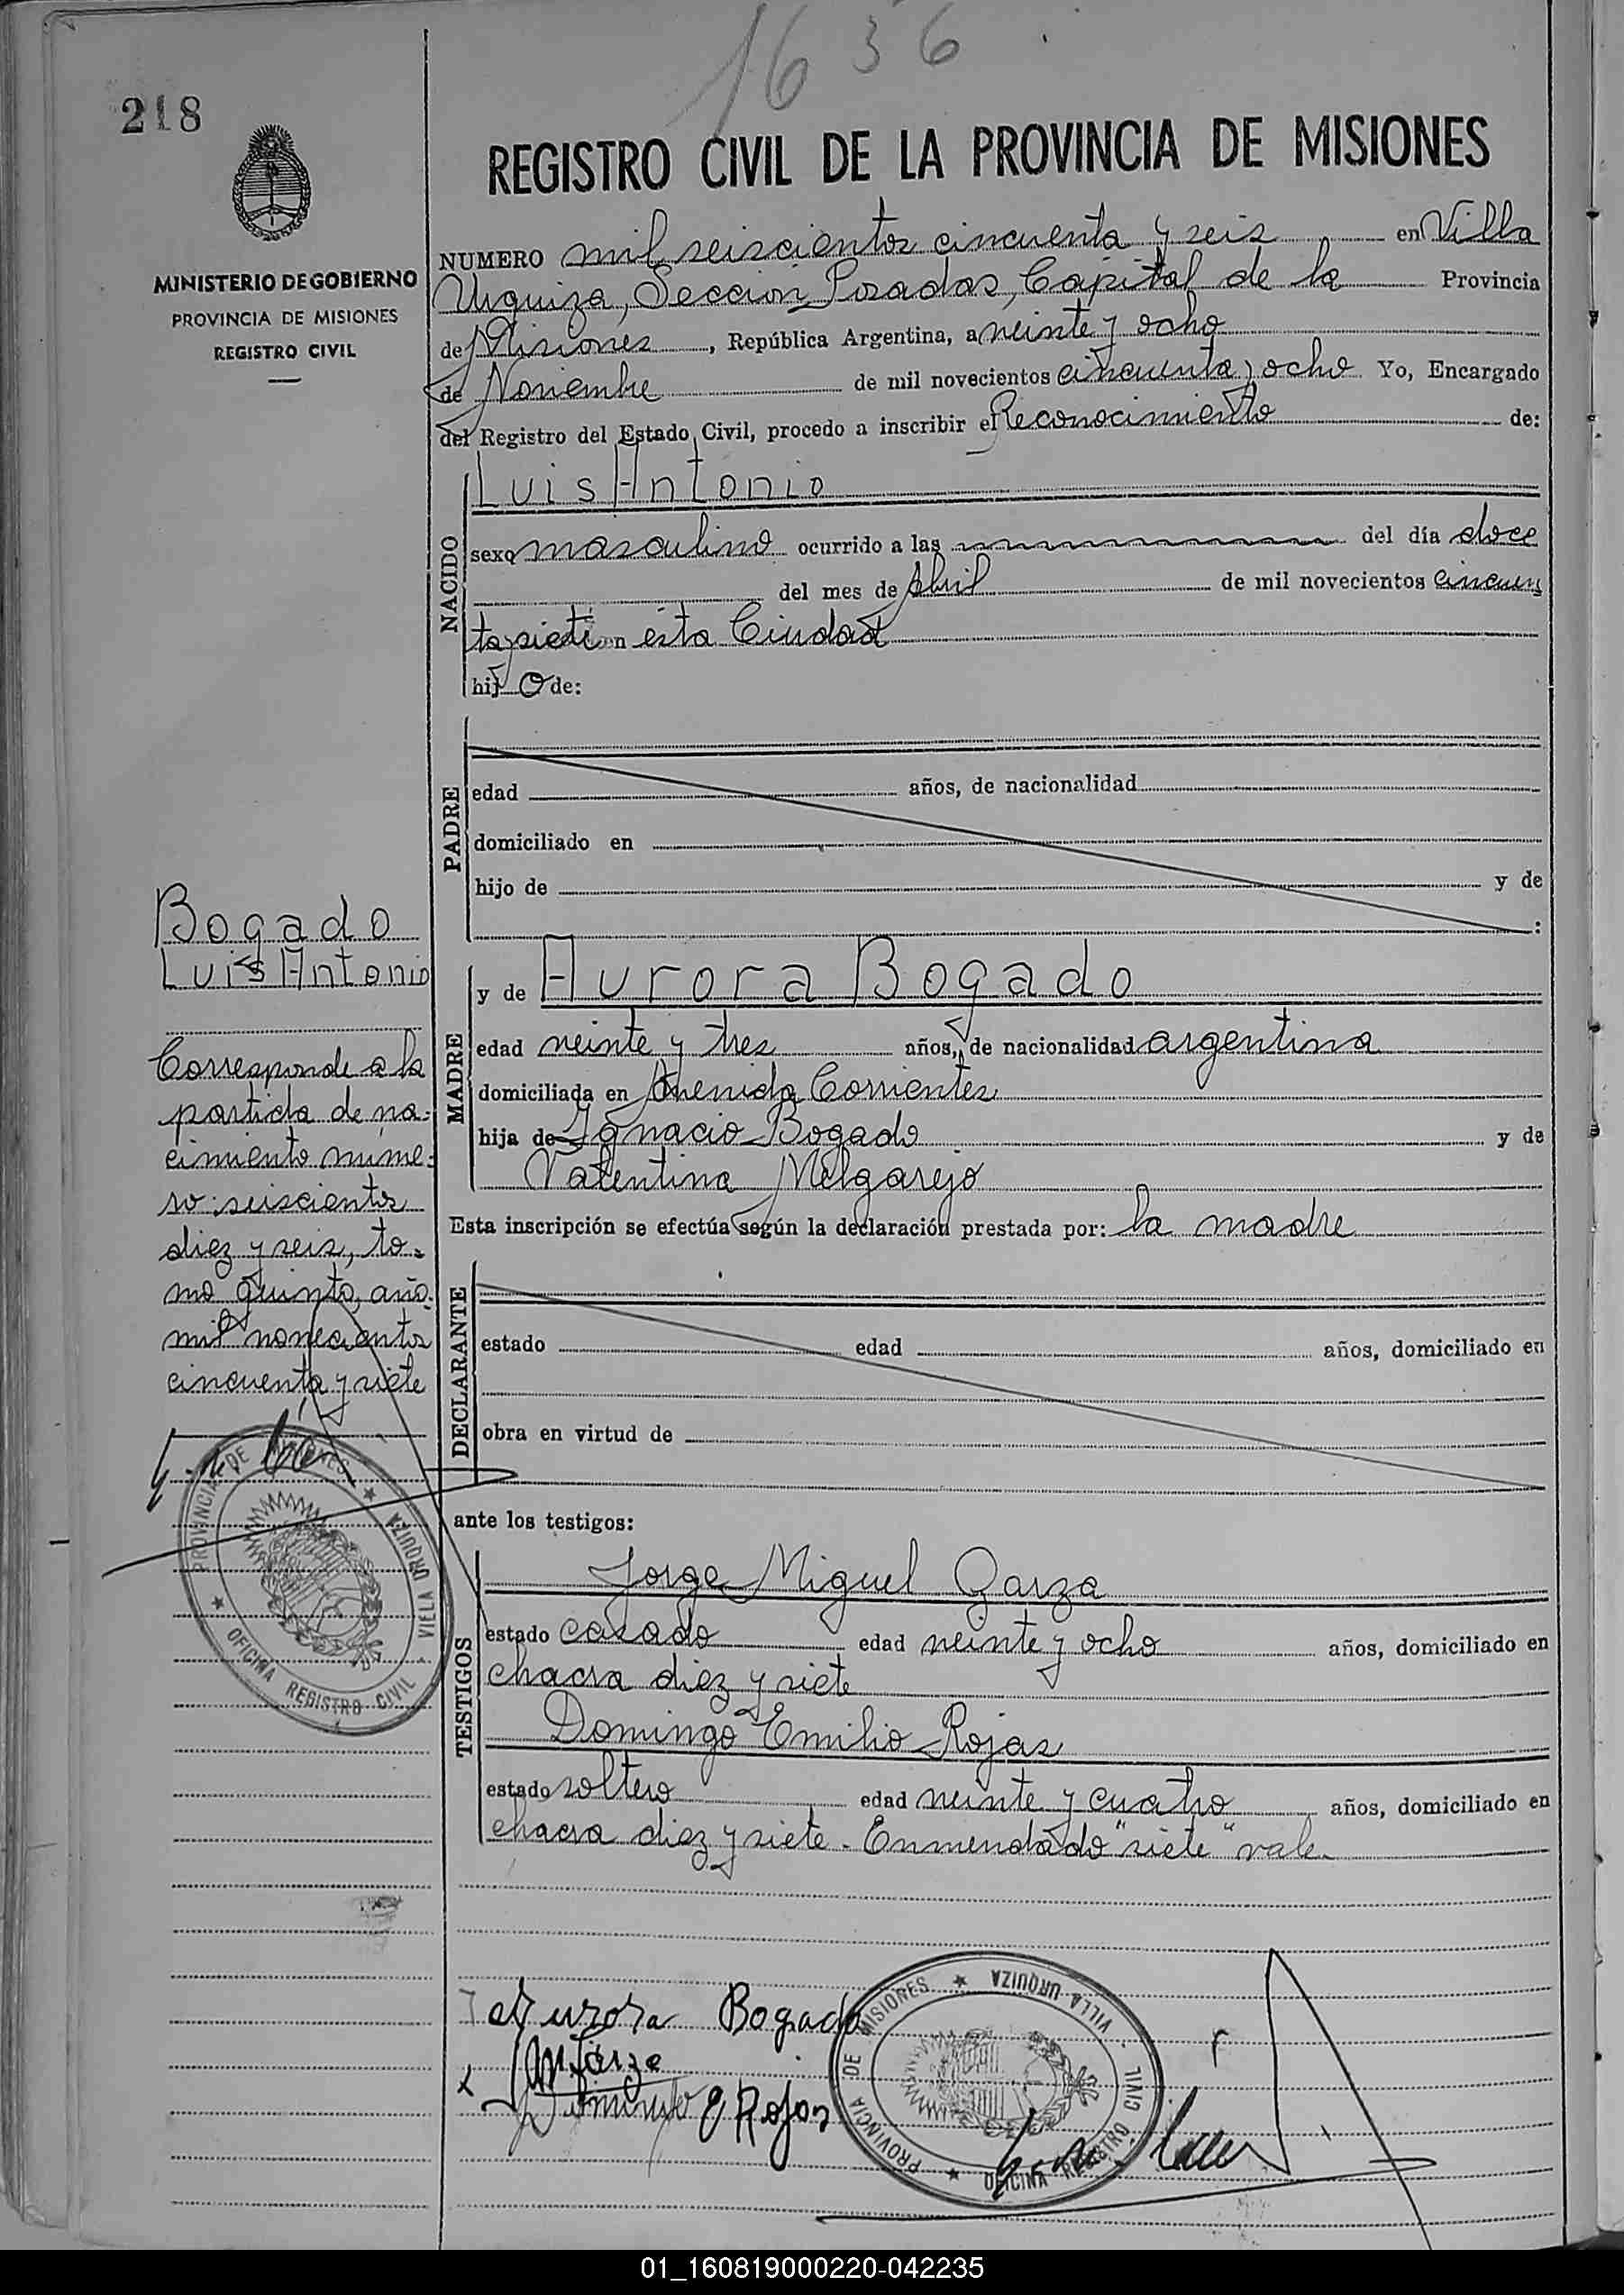 1636
218
REGISTRO CIVIL DE LA PROVINCIA DE MISIONES
MINISTERIO DE GOBIERNO
PROVINCIA DE MISIONES
REGISTRO CIVIL
NUMERO mil seiscientos cincuenta y seis en Villa
Urquiza, Sección Posadas, Capital de la Provincia
de Misiones, República Argentina, a veinte y ocho
de Noviembre de mil novecientos cincuenta y ocho Yo, Encargado
del Registro del Estado Civil, procedo a inscribir el Reconocimiento de:
NACIDO
Luis Antonio
sexo masculino ocurrido a las del día doce
del mes de Abril de mil novecientos cincuen
ta y siete en esta Ciudad
hijo de:
PADRE
edad años, de nacionalidad
domiciliado en
hijo de y de
:
Bogado
Luis Antonio
Corresponde a la
partida de na-
cimiento núme-
ro seiscientos
diez y seis, to-
mo quinto, año
mil novecientos
cincuenta y siete
PROVINCIA DE MISIONES ★ VILLA URQUIZA
★ OFICINA REGISTRO CIVIL
MADRE
y de Aurora Bogado
edad veinte y tres años, de nacionalidad argentina
domiciliada en Avenida Corrientes
hija de Ignacio Bogado y de
Valentina Melgarejo
Esta inscripción se efectúa según la declaración prestada por: la madre
DECLARANTE
estado edad años, domiciliado en
obra en virtud de
ante los testigos:
TESTIGOS
Jorge Miguel Garza
estado casado edad veinte y ocho años, domiciliado en
chacra diez y siete
Domingo Emilio Rojas
estado soltero edad veinte y cuatro años, domiciliado en
chacra diez y siete. Enmendado "siete" vale.
Aurora Bogado
JM Garza
Domingo E Rojas
PROVINCIA DE MISIONES ★ VILLA URQUIZA
★ OFICINA REGISTRO CIVIL
01_160819000220-042235